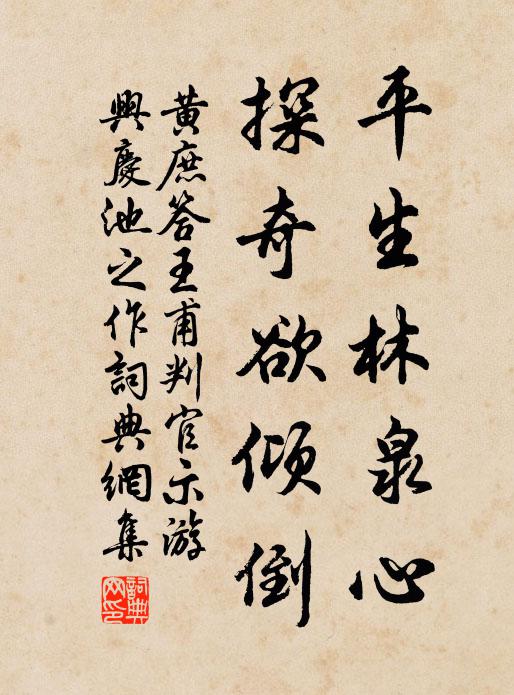 平生林泉心
探奇欲傾倒
黄庶答王甫判官示游
興慶池之作詞典網集
詞典
网印